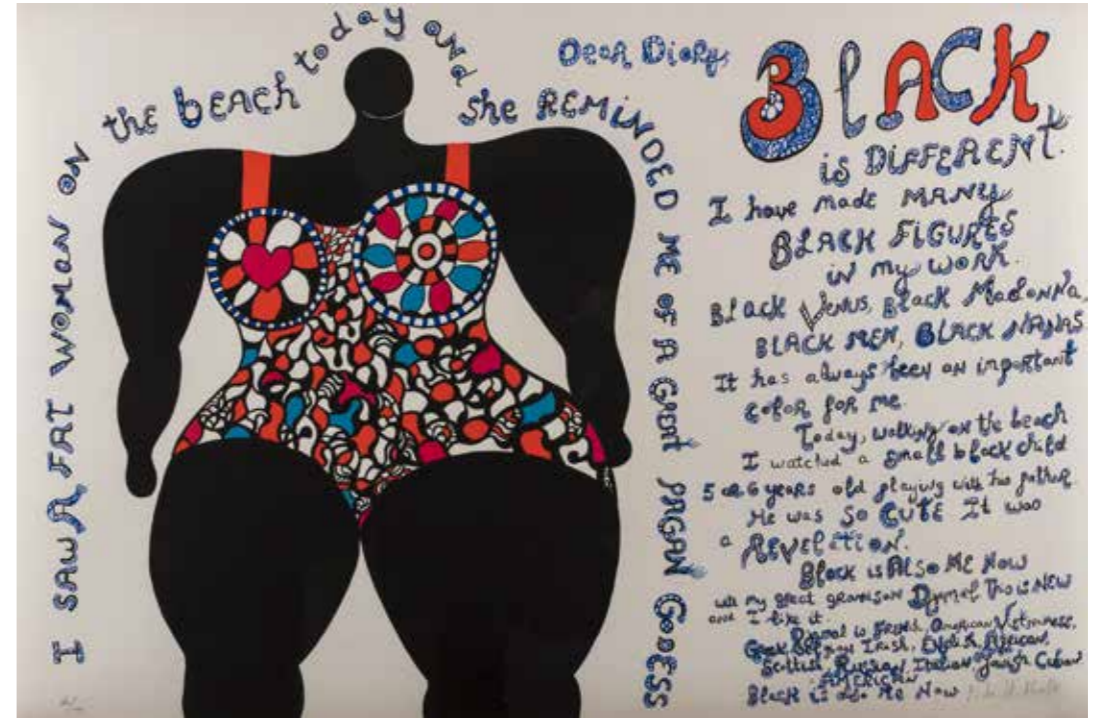 I SAW A FAT WOMAN ON the bEACH today AND she REMINDED ME OF A GREAT PAGAN GODESS
Dear Diary,
BLACK
is DIFFERENT.
I have made MANY
BLACK FIGURES
in my WORK.
BLACK VENUS, BLACK MADONNA,
BLACK MEN, BLACK NANAS
It has always been an important
COLOR FOR ME
Today, walking on the beach
I watched a small black child
5 OR 6 years old playing with his father.
He was SO CUTE It was
a REVELATION.
Black is Also ME NOW
with my great grandson Djamal This is NEW
and I like it.
Djamal is FRENCH, American Vietnamese,
Irish, English, African,
Scottish, Russian, Italian Jewish Cuban
AMERICAN
Black is also Me Now